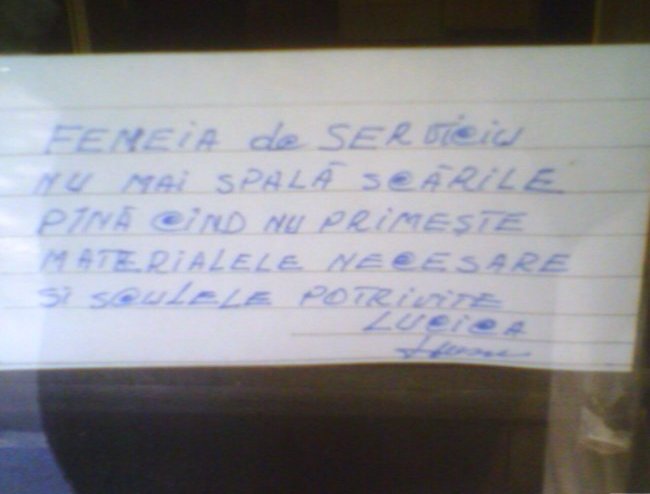 FEMEIA de SERViciu
NU MAI SPALĂ SCĂRILE
PÎNĂ CÎND NU PRIMEȘTE
MATERIALELE NECESARE
Și SCULELE POTRIVITE
LUCICA